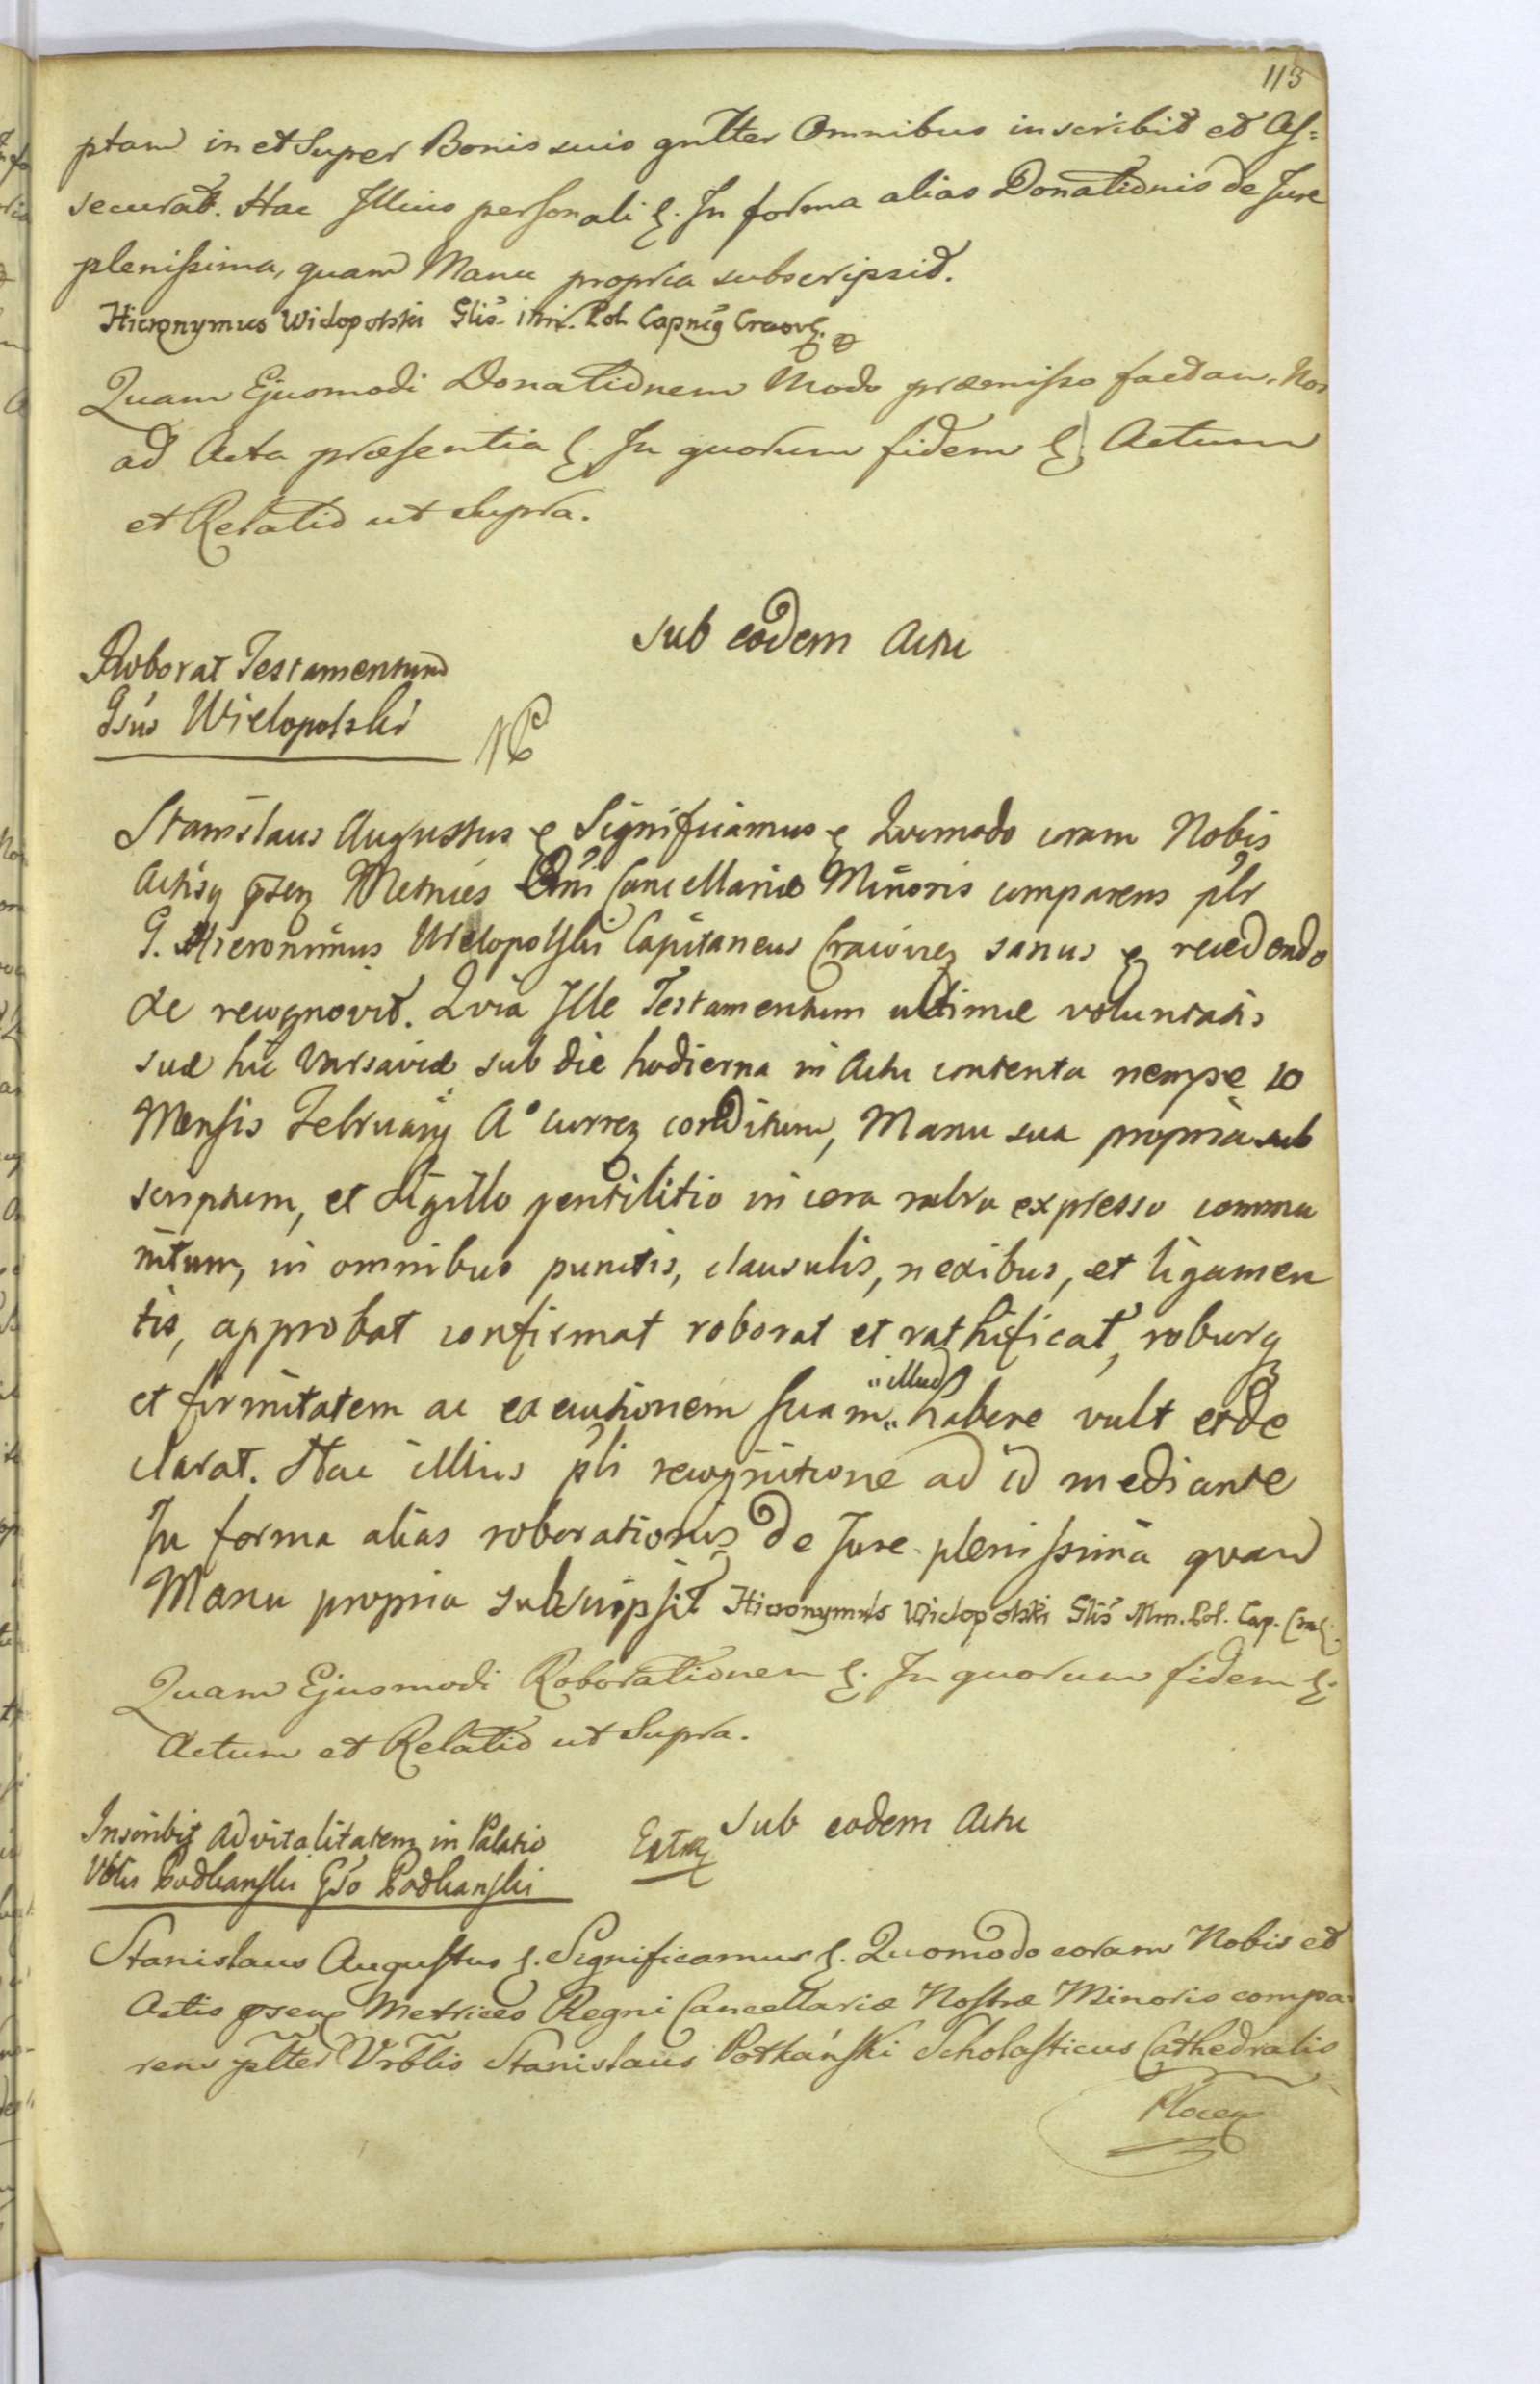 113
ptam in et Super Bonis suis gnltter Omnibus inscribit et As=
securat. Hac Illius personali &. In forma alias Donationis de Jure
plenissima, quam Manu propria subscripsit.
Hieronymus Wielopolski
Quam Ejusmodi Donationem Modo præmisso factam, Nos
ad Acta præsentia &. In quorum fidem & Actum
et Relatio ut Supra.
Sub eodem Actu
Roborat Testamentum
Gsus Wielopolski
Stanislaus Augustus & Significamus & Quomodo coram Nobis
Actisq pñseñ Metrices Rñi Cancellariæ Minoris comparens plr
G. Hieronimus Wielopolski Capitaneus Cracovieñ sanus & recedendo
de recognovit. Quia Ille Testamentum ultimæ voluntatis
suæ hic Varsaviæ sub die hodierna in Actu contenta nempe 10
Mensis February A° curreñ conditum, Manu sua propria sub
scriptum, et Sigillo gentilitio in cera rubra expresso commu
nitum, in omnibus punctis, clausulis, nexibus, et ligamen
tis, approbat confirmat roborat et rathificat, roburq
et firmitatem ac executionem suam „illud„ habere vult et de
clarat. Hac illius pli recognitione ad id mediante
In forma alias roborationis de Jure plenissima quam
Manu propria subscripsit Hieronymus Wielopolski
Quam Ejusmodi Roborationem &. In quorum fidem &.
Actum et Relatio ut Supra.
Sub eodem Actu
Inscribit Advitalitatem in Palatio
Vblis Podkanski Gso Podkanski
Extra
Stanislaus Augustus &. Significamus &. Quomodo coram Nobis et
Actis pseñ Metrices Regni Cancellariæ Nostræ Minoris compa=
rens pltter Vrblis Stanislaus Potkański Scholasticus Cathedralis
Ploceñ